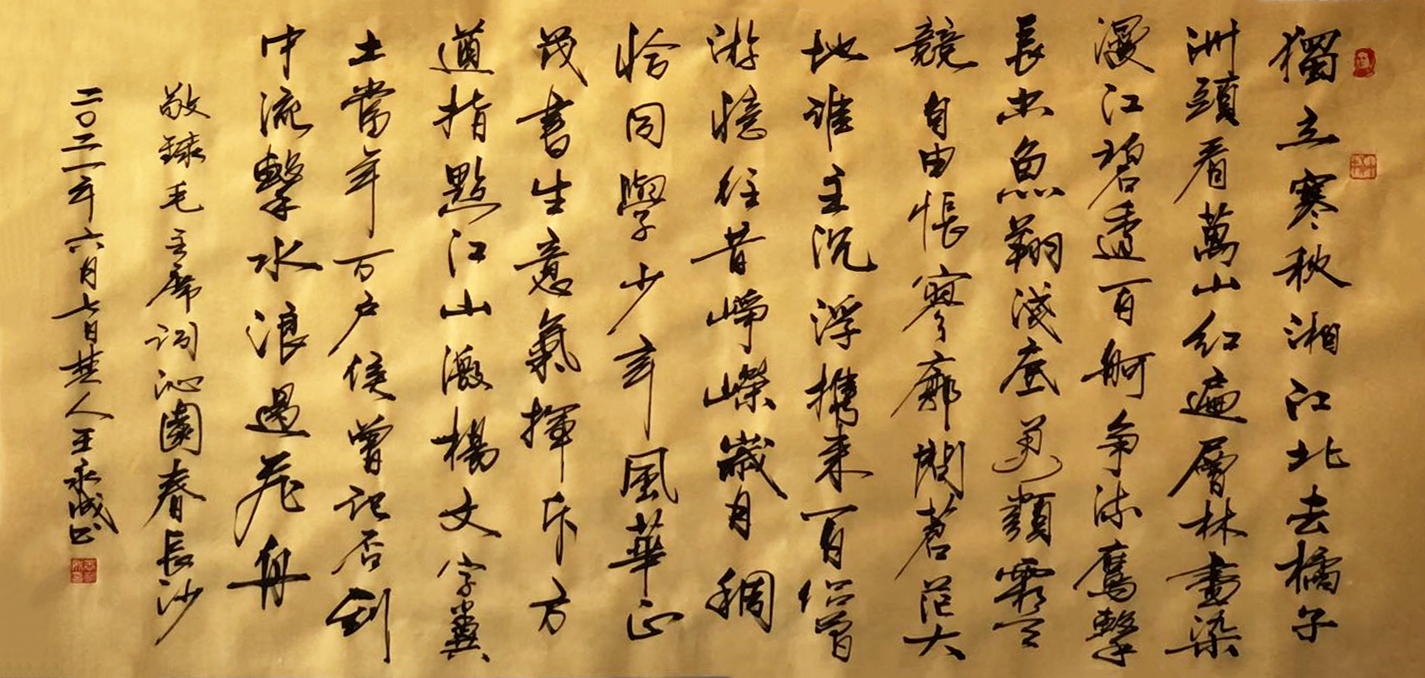 獨立寒秋湘江北去橘子
洲頭看萬山紅遍層林盡染
漫江碧透百舸争流鷹擊
長空魚翔淺底萬類霜天
競自由悵寥廓問蒼茫大
地誰主沉浮攜來百侣曾
游憶往昔崢嶸歲月稠
恰同學少年風華正
茂書生意氣揮斥方
遒指點江山激揚文字糞
土當年万户侯曾記否到
中流擊水浪遏飛舟
敬録毛主席词沁園春長沙
二〇二一年六月七日楚人王永成书